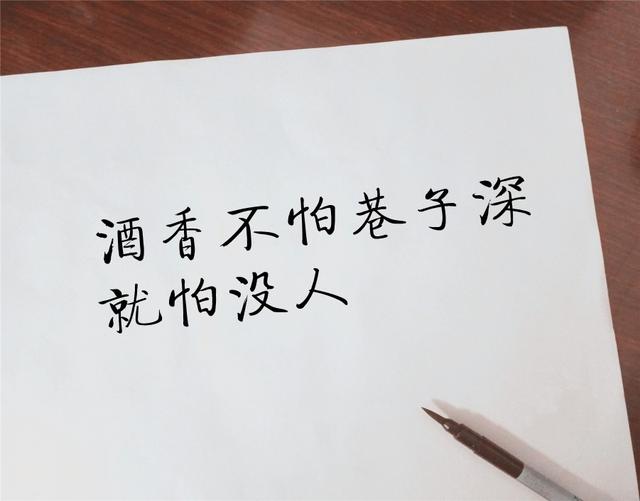 酒香不怕巷子深
就怕没人